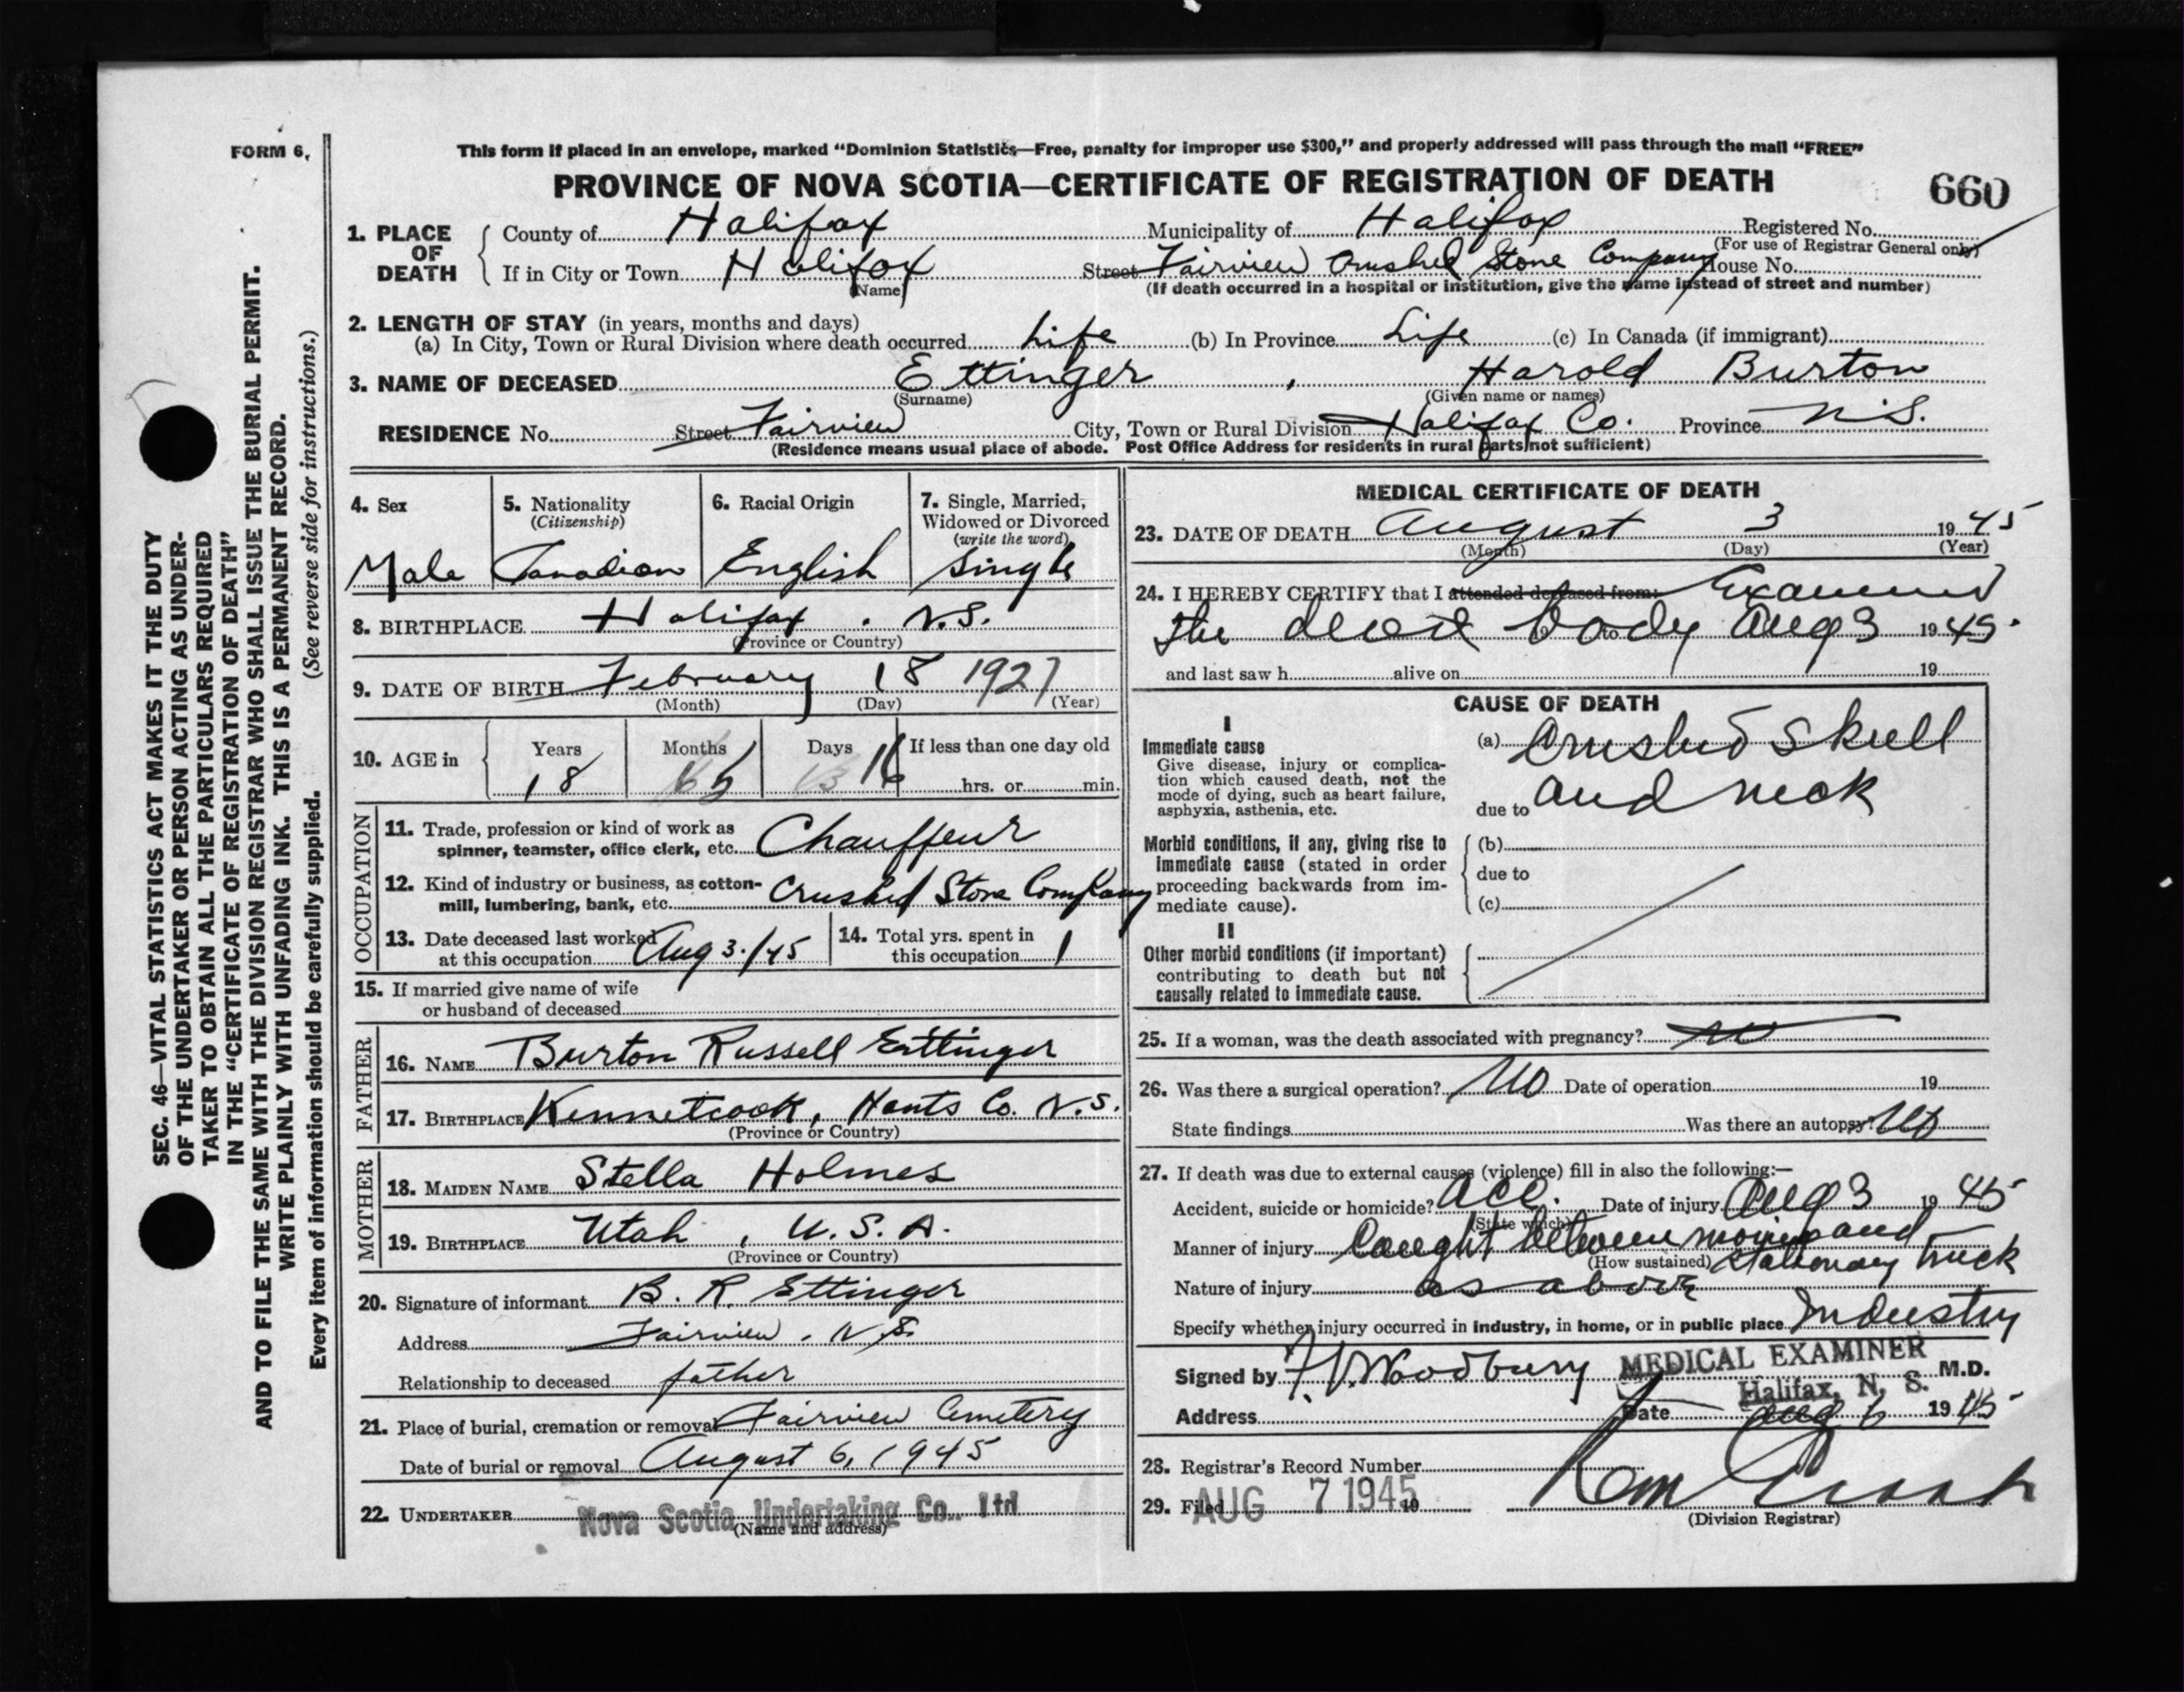 FORM 6.
This form if placed in an envelope, marked "Dominion Statistics—Free, penalty for improper use $300," and properly addressed will pass through the mail "FREE"
PROVINCE OF NOVA SCOTIA—CERTIFICATE OF REGISTRATION OF DEATH
660
1. PLACE OF DEATH
County of Halifax Municipality of Halifax Registered No.
(For use of Registrar General only)
If in City or Town Halifax Street Fairview Crushed Stone Company House No.
(Name) (If death occurred in a hospital or institution, give the name instead of street and number)
2. LENGTH OF STAY (in years, months and days)
(a) In City, Town or Rural Division where death occurred Life (b) In Province Life (c) In Canada (if immigrant)
3. NAME OF DECEASED Ettinger, Harold Burton
(Surname) (Given name or names)
RESIDENCE No. Street Fairview City, Town or Rural Division Halifax Co. Province N.S.
(Residence means usual place of abode. Post Office Address for residents in rural parts not sufficient)
4. Sex
Male
5. Nationality
(Citizenship)
Canadian
6. Racial Origin
English
7. Single, Married,
Widowed or Divorced
(write the word)
Single
8. BIRTHPLACE Halifax. N.S.
(Province or Country)
9. DATE OF BIRTH February 18 1927
(Month) (Day) (Year)
10. AGE in Years Months Days If less than one day old
18 5 16 hrs. or min.
OCCUPATION
11. Trade, profession or kind of work as
spinner, teamster, office clerk, etc. Chauffeur
12. Kind of industry or business, as cotton-
mill, lumbering, bank, etc. Crushed Stone Company
13. Date deceased last worked
at this occupation Aug 3./45
14. Total yrs. spent in
this occupation 1
15. If married give name of wife
or husband of deceased
FATHER
16. NAME Burton Russell Ettinger
17. BIRTHPLACE Kennetcook, Hants Co. N.S.
(Province or Country)
MOTHER
18. MAIDEN NAME Stella Holmes
19. BIRTHPLACE Utah, U.S.A.
(Province or Country)
20. Signature of informant B. R. Ettinger
Address Fairview, N.S.
Relationship to deceased father
21. Place of burial, cremation or removal Fairview Cemetery
Date of burial or removal August 6, 1945
22. UNDERTAKER Nova Scotia Undertaking Co., Ltd
(Name and address)
MEDICAL CERTIFICATE OF DEATH
23. DATE OF DEATH August 3 1945
(Month) (Day) (Year)
24. I HEREBY CERTIFY that I attended deceased from: Examined
the dead body to Aug 3 1945.
and last saw h alive on 19
CAUSE OF DEATH
I
Immediate cause
Give disease, injury or complica-
tion which caused death, not the
mode of dying, such as heart failure,
asphyxia, asthenia, etc.
(a) Crushed Skull
due to and neck
Morbid conditions, if any, giving rise to
immediate cause (stated in order
proceeding backwards from im-
mediate cause).
(b)
due to
(c)
II
Other morbid conditions (if important)
contributing to death but not
causally related to immediate cause.
25. If a woman, was the death associated with pregnancy? no
26. Was there a surgical operation? No Date of operation 19
State findings Was there an autopsy? No
27. If death was due to external causes (violence) fill in also the following:—
Accident, suicide or homicide? acc. Date of injury Aug 3 1945
(State which)
Manner of injury Caught between moving and
(How sustained) stationary truck
Nature of injury as above
Specify whether injury occurred in industry, in home, or in public place Industry
Signed by Woodbury MEDICAL EXAMINER M.D.
Halifax, N. S.
Address Date Aug 6 1945
28. Registrar's Record Number
29. Filed AUG 7 1945 19
(Division Registrar)
SEC. 46—VITAL STATISTICS ACT MAKES IT THE DUTY
OF THE UNDERTAKER OR PERSON ACTING AS UNDER-
TAKER TO OBTAIN ALL THE PARTICULARS REQUIRED
IN THE "CERTIFICATE OF REGISTRATION OF DEATH"
AND TO FILE THE SAME WITH THE DIVISION REGISTRAR WHO SHALL ISSUE THE BURIAL PERMIT.
WRITE PLAINLY WITH UNFADING INK. THIS IS A PERMANENT RECORD.
Every item of information should be carefully supplied. (See reverse side for instructions.)